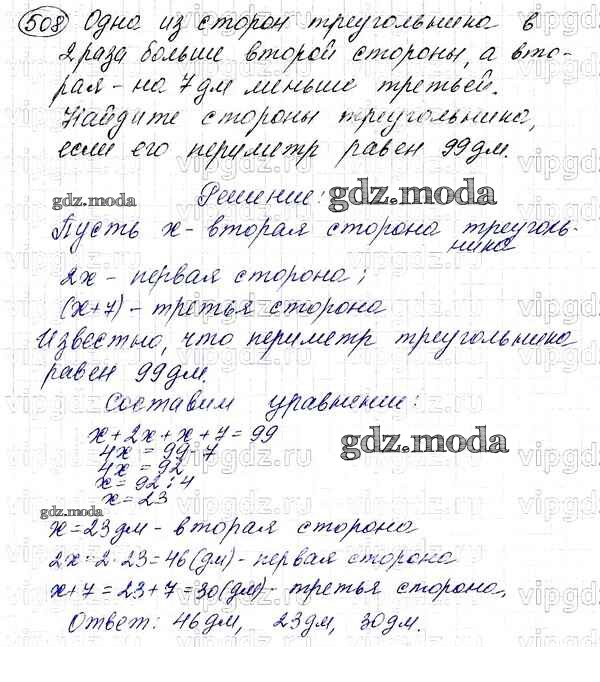 508 Одна из сторон треугольника в
2 раза больше второй стороны, а вто-
рая - на 7 дм меньше третьей.
Найдите стороны треугольника,
если его периметр равен 99 дм.
gdz.moda
Решение:
gdz.moda
Пусть x - вторая сторона треуголь-
ника
2x - первая сторона;
(x+7) - третья сторона
Известно, что периметр треугольника
равен 99 дм.
Составим уравнение:
x+2x+x+7=99
4x = 99-7
gdz.moda
4x = 92
x = 92:4
x = 23
gdz.moda
x=23 дм - вторая сторона
2x = 2·23=46 (дм) - первая сторона
x+7=23+7=30 (дм) - третья сторона,
Ответ: 46 дм, 23 дм, 30 дм.